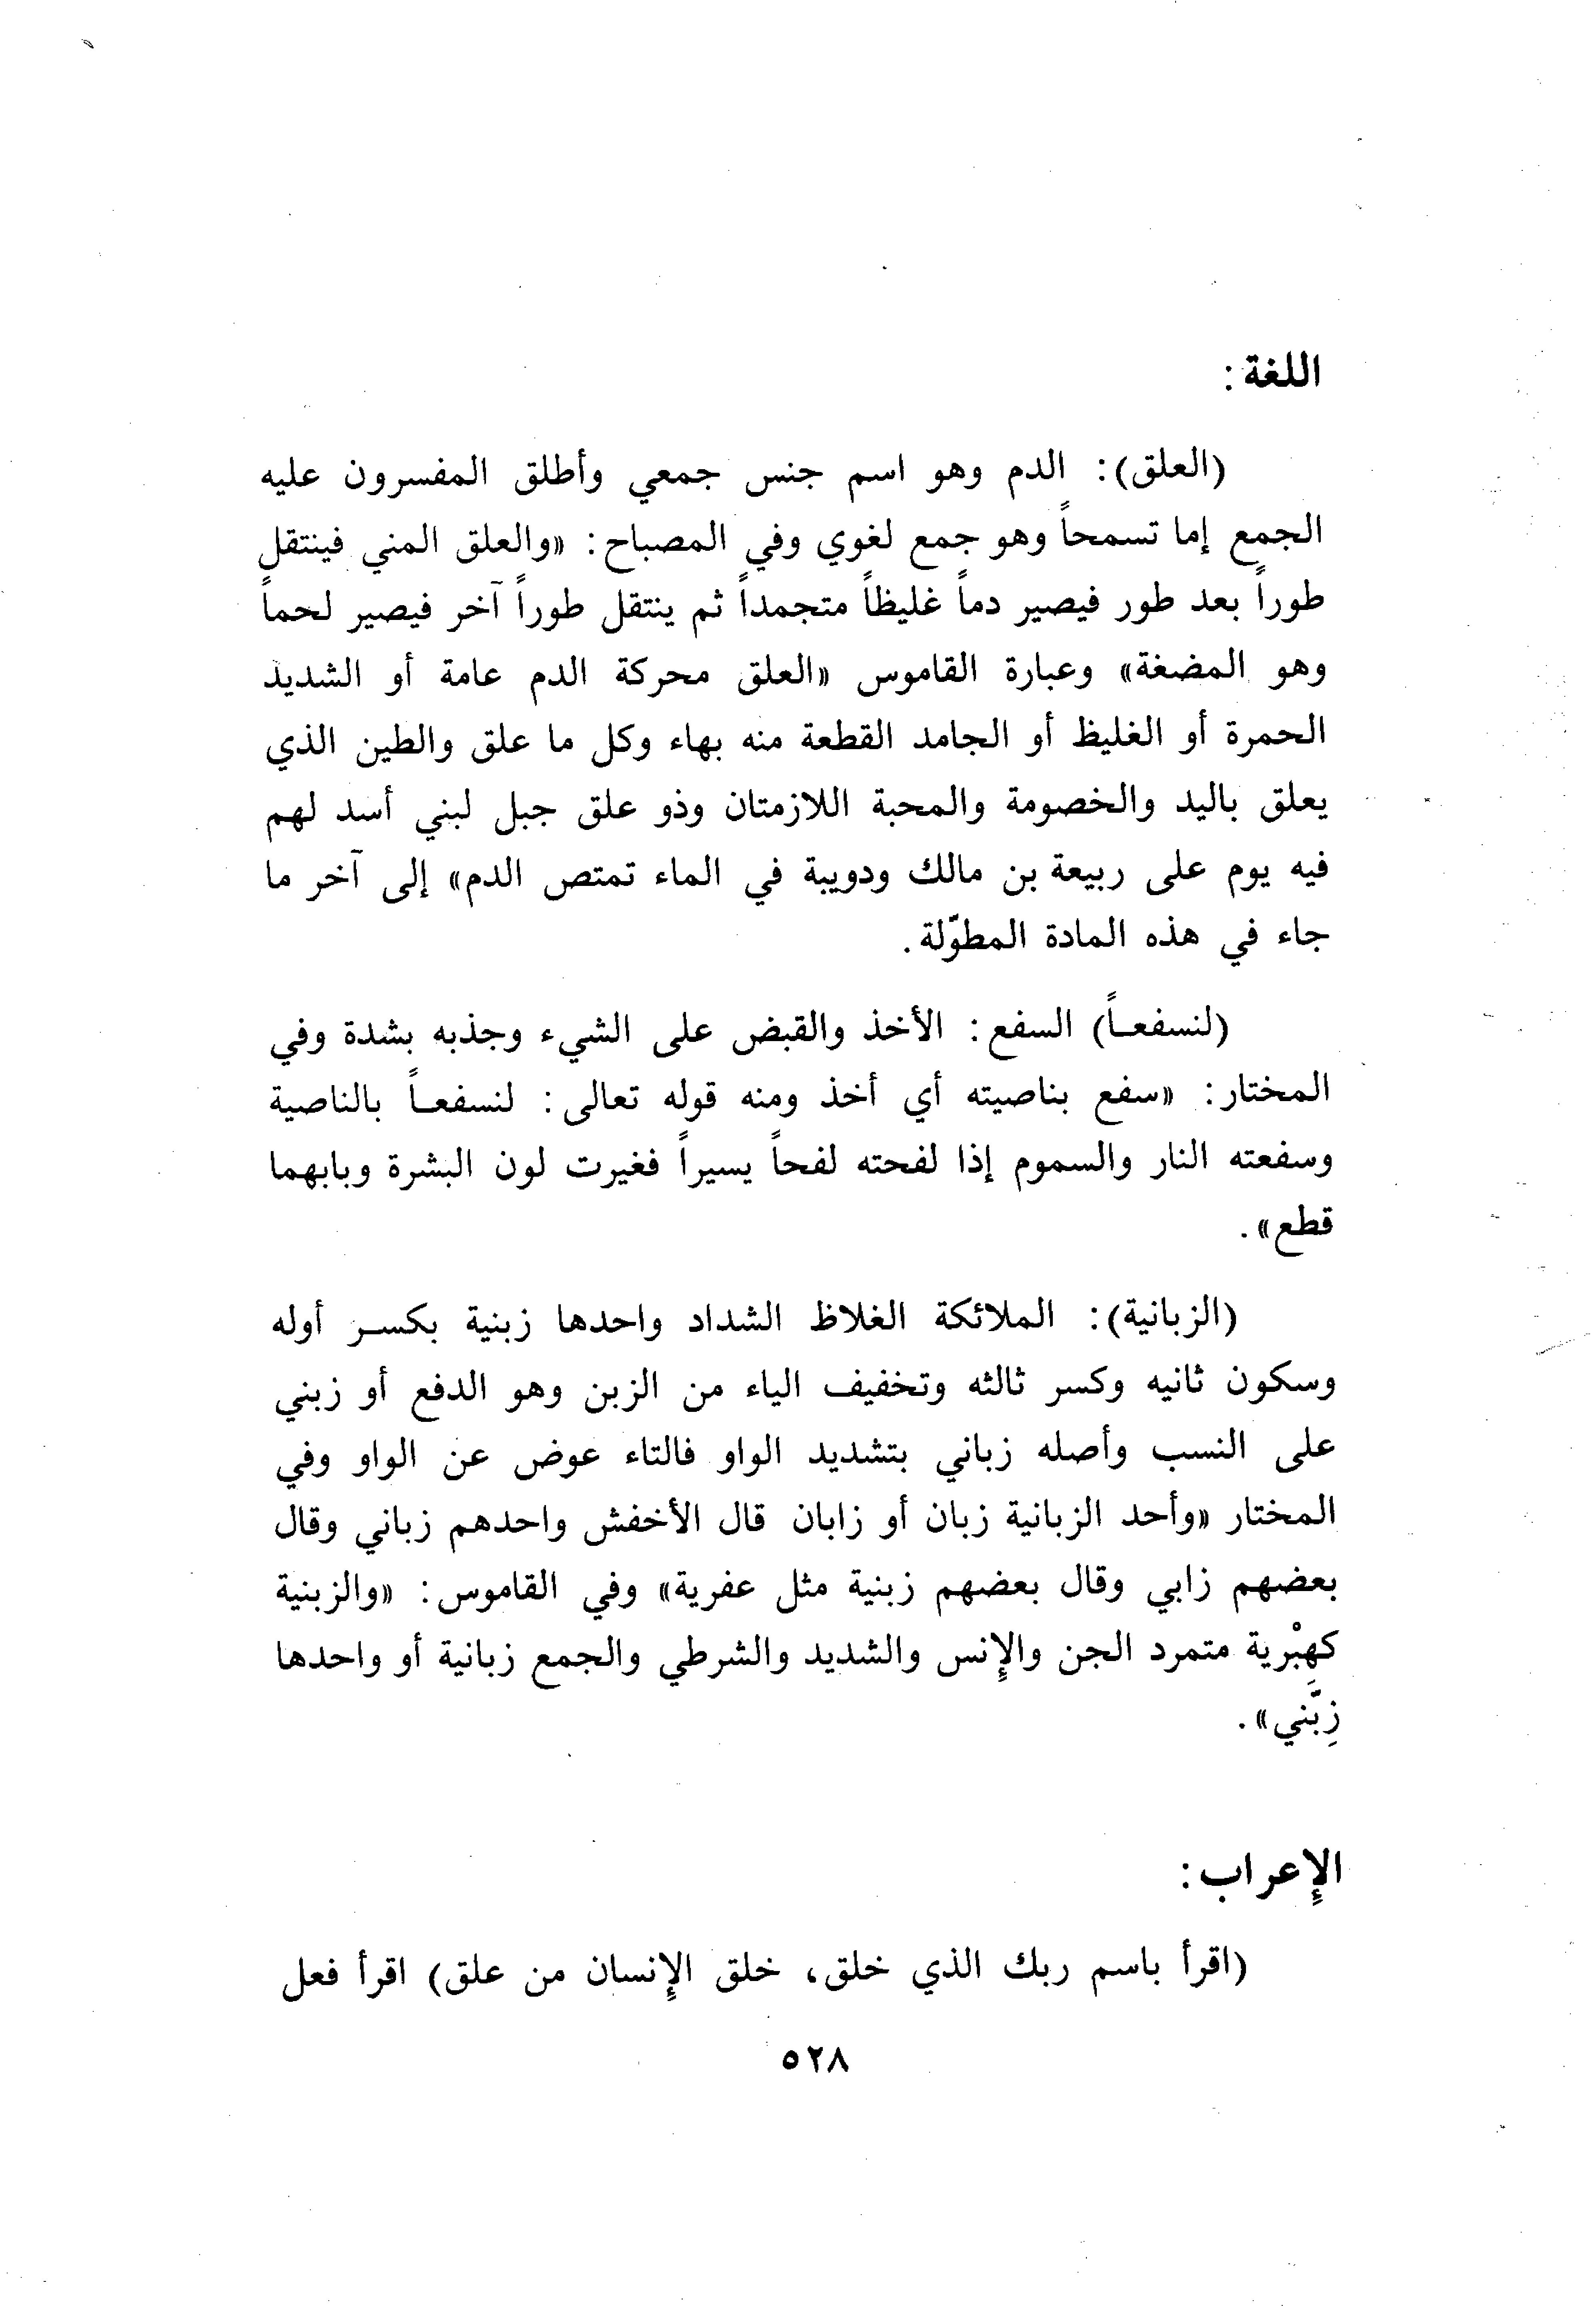 اللغة :
(العلق): الدم وهو اسم جنس جمعي وأطلق المفسرون عليه
الجمع إما تسمحاً وهو جمع لغوي وفي المصباح: «والعلق المني فينتقل
طوراً بعد طور فيصير دماً غليظاً متجمداً ثم ينتقل طوراً آخر فيصير لحماً
وهو المضغة» وعبارة القاموس «العلق محركة الدم عامة أو الشديد
الحمرة أو الغليظ أو الجامد القطعة منه بهاء وكل ما علق والطين الذي
يعلق باليد والخصومة والمحبة اللازمتان وذو علق جبل لبني أسد لهم
فيه يوم على ربيعة بن مالك ودويبة في الماء تمتص الدم» إلى آخر ما
جاء في هذه المادة المطوّلة.
(لنسفعـاً) السفع: الأخذ والقبض على الشيء وجذبه بشدة وفي
المختار: «سفع بناصيته أي أخذ ومنه قوله تعالى: لنسفعـاً بالناصية
وسفعته النار والسموم إذا لفحته لفحاً يسيراً فغيرت لون البشرة وبابهما
قطع».
(الزبانية): الملائكة الغلاظ الشداد واحدها زبنية بكسـر أوله
وسكون ثانيه وكسر ثالثه وتخفيف الياء من الزبن وهو الدفع أو زبني
على النسب وأصله زباني بتشديد الواو فالتاء عوض عن الواو وفي
المختار «وأحد الزبانية زبان أو زابان قال الأخفش واحدهم زباني وقال
بعضهم زابي وقال بعضهم زبنية مثل عفرية» وفي القاموس: «والزبنية
كهِبْرية متمرد الجن والإنس والشديد والشرطي والجمع زبانية أو واحدها
زِبَّني».
الإعراب :
(اقرأ باسم ربك الذي خلق، خلق الإنسان من علق) اقرأ فعل
٥٢٨